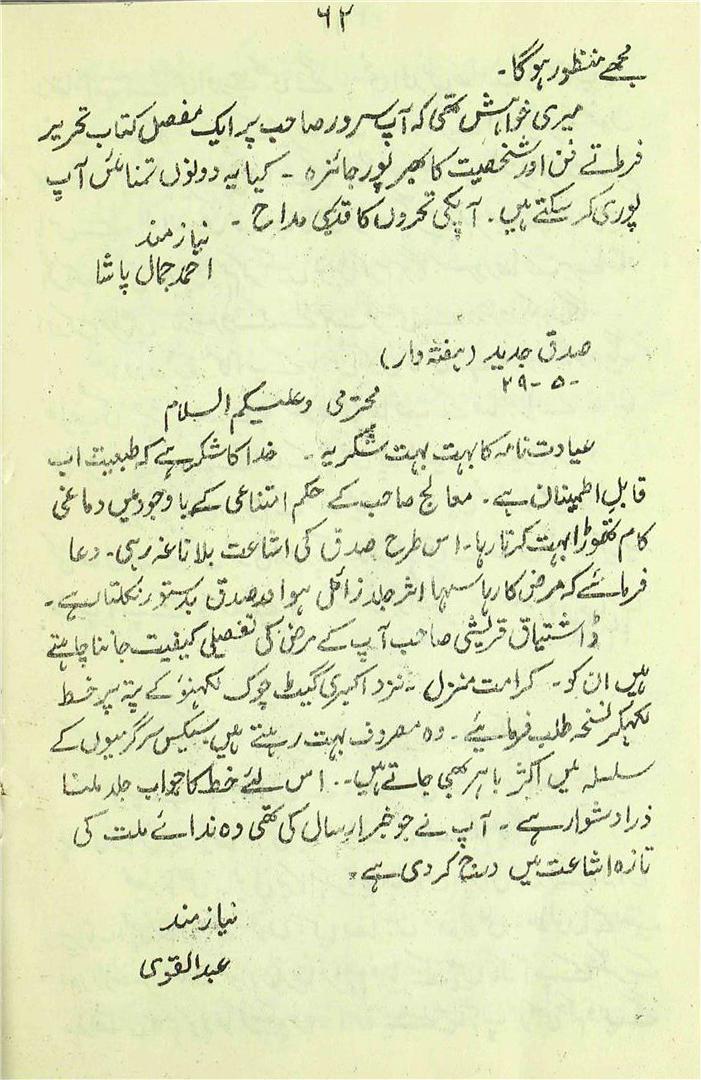 ۶۲
مجھے منظور ہوگا۔
میری خواہش تھی کہ آپ سرور صاحب پر ایک مفصل کتاب تحریر
فرماتے فن اور شخصیت کا بھرپور جائزہ ۔ کیا یہ دونوں تمنائیں آپ
پوری کر سکتے ہیں ۔ آپکی تحروں کا قدیمی مداح ۔
نیاز مند
احمد جمال پاشا
صدق جدید (ہفتہ وار)
۲۹-۵-
محترمی وعلیکم السلام
عیادت نامہ کا بہت بہت شکریہ ۔ خدا کا شکر ہے کہ طبیعت اب
قابل اطمینان ہے ۔ معالج صاحب کے حکم امتناعی کے باوجود میں دماغی
کام تھوڑا بہت کرتا رہا ۔ اس طرح صدق کی اشاعت بلا ناغہ رہی ۔ دعا
فرمائے کہ مرض کا رہا سہا اثر جلد زائل ہو اور صدق بدستور نکلتا رہے ۔
ڈاکٹر اشتیاق قریشی صاحب آپ کے مرض کی تفصیلی کیفیت جاننا چاہتے
ہیں ان کو ۔ کرامت منزل ۔ نزد اکبری گیٹ چوک لکھنؤ کے پتہ پر خط
لکھکر نسخہ طلب فرمائیے ۔ وہ مصروف بہت رہتے ہیں سرگرمیوں کے
سلسلہ میں اکثر باہر بھی جاتے ہیں ۔ اس لئے خط کا جواب جلد ملنا
ذرا دشوار ہے ۔ آپ نے جو خبر ارسال کی تھی وہ ندائے ملت کی
تازہ اشاعت میں درج کر دی ہے ۔
نیاز مند
عبدالقوی